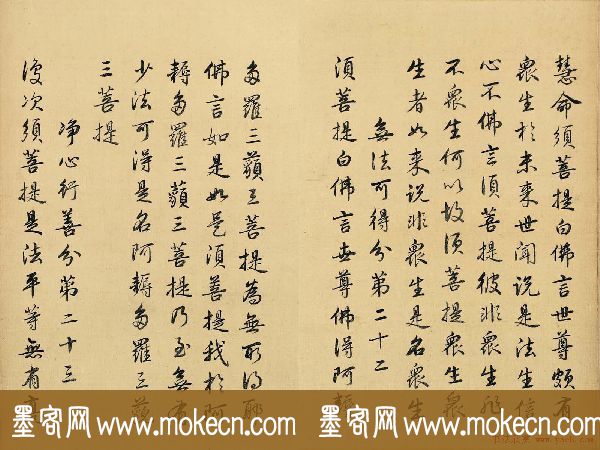 慧命須菩提白佛言世尊頗有
衆生於未來世聞説是法生信
心不佛言須菩提彼非衆生非
不衆生何以故須菩提衆生衆
生者如来説非衆生是名衆生
無法可得分第二十二
須菩提白佛言世尊佛得阿耨
多羅三藐三菩提為無所得耶
佛言如是如是須菩提我於阿
耨多羅三藐三菩提乃至無有
少法可得是名阿耨多羅三藐
三菩提
净心行善分第二十三
復次須菩提是法平等無有高
墨客网 www.mokecn.com
墨客网 www.mokecn.com